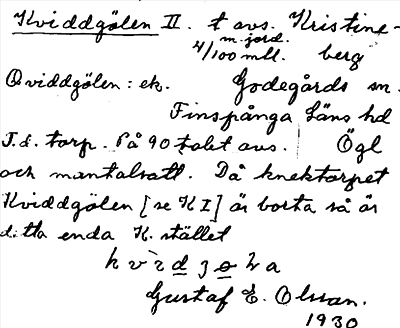 Kviddgölen II. t avs. Kristine-
m. jord.
4/100 mtl. berg
Qviddgölen: ek. Godegårds sn.
Finspånga Läns hd
T.d. torp. På 90 talet avs. Ögl
och mantalsatt. Då knektorpet
Kviddgölen [se K I] är borta så är
d:tta enda K. stället
Gustaf E. Olsson.
1930